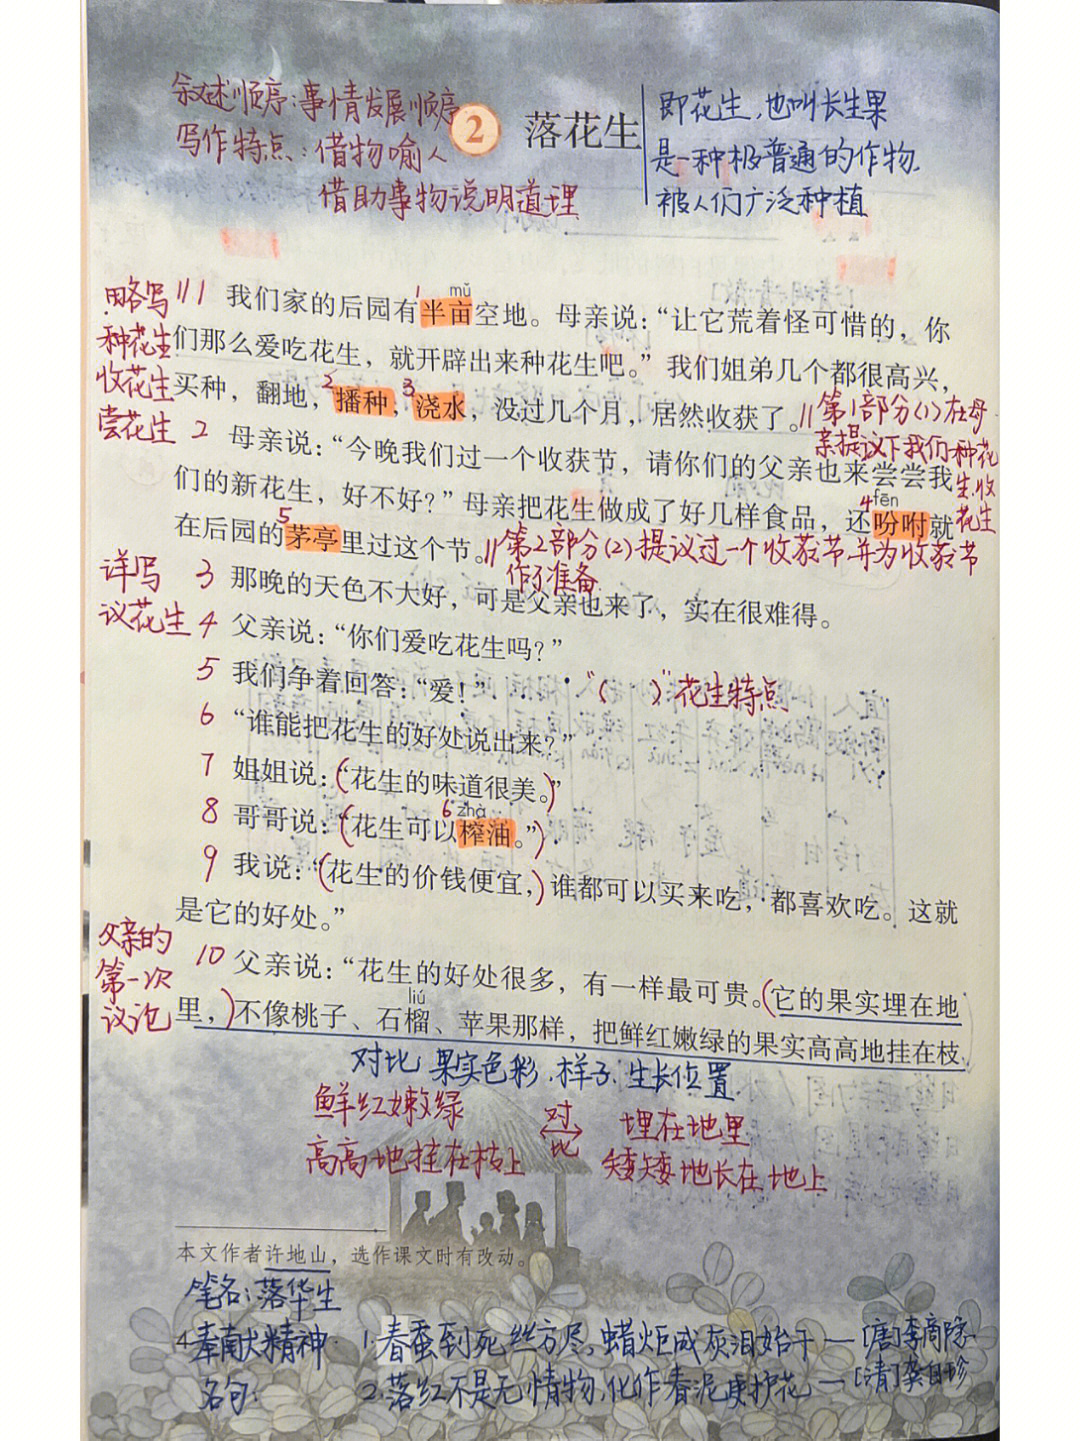 叙述顺序:事情发展顺序
写作特点:借物喻人
借助事物说明道理
2 落花生
即花生,也叫长生果
是一种极普通的作物,
被人们广泛种植
略写
种花生
收花生
尝花生
mǔ
1 我们家的后园有半亩空地。母亲说:“让它荒着怪可惜的,你
们那么爱吃花生,就开辟出来种花生吧。”我们姐弟几个都很高兴,
买种,翻地,播种,浇水,没过几个月,居然收获了。
第1部分(1)在母
亲提议下我们种花
生,收
花生
2 母亲说:“今晚我们过一个收获节,请你们的父亲也来尝尝我
们的新花生,好不好?”母亲把花生做成了好几样食品,还吩咐就
fēn
在后园的茅亭里过这个节。
第2部分(2)提议过一个收获节并为收获节
作了准备
详写
议花生
3 那晚的天色不大好,可是父亲也来了,实在很难得。
4 父亲说:“你们爱吃花生吗?”
5 我们争着回答:“爱!”
“( )”花生特点
6 “谁能把花生的好处说出来?”
7 姐姐说:(“花生的味道很美。)”
zhà
8 哥哥说:(“花生可以榨油。”)
9 我说:“(花生的价钱便宜,)谁都可以买来吃,都喜欢吃。这就
是它的好处。”
父亲的
第一次
议论
10 父亲说:“花生的好处很多,有一样最可贵。(它的果实埋在地
liú
里,)不像桃子、石榴、苹果那样,把鲜红嫩绿的果实高高地挂在枝
对比 果实色彩.样子.生长位置
鲜红嫩绿
高高地挂在枝上
对比
埋在地里
矮矮地长在地上
本文作者许地山,选作课文时有改动。
笔名:落华生
4.奉献精神
名句:
1.春蚕到死丝方尽,蜡炬成灰泪始干—[唐]李商隐
2.落红不是无情物,化作春泥更护花—[清]龚自珍